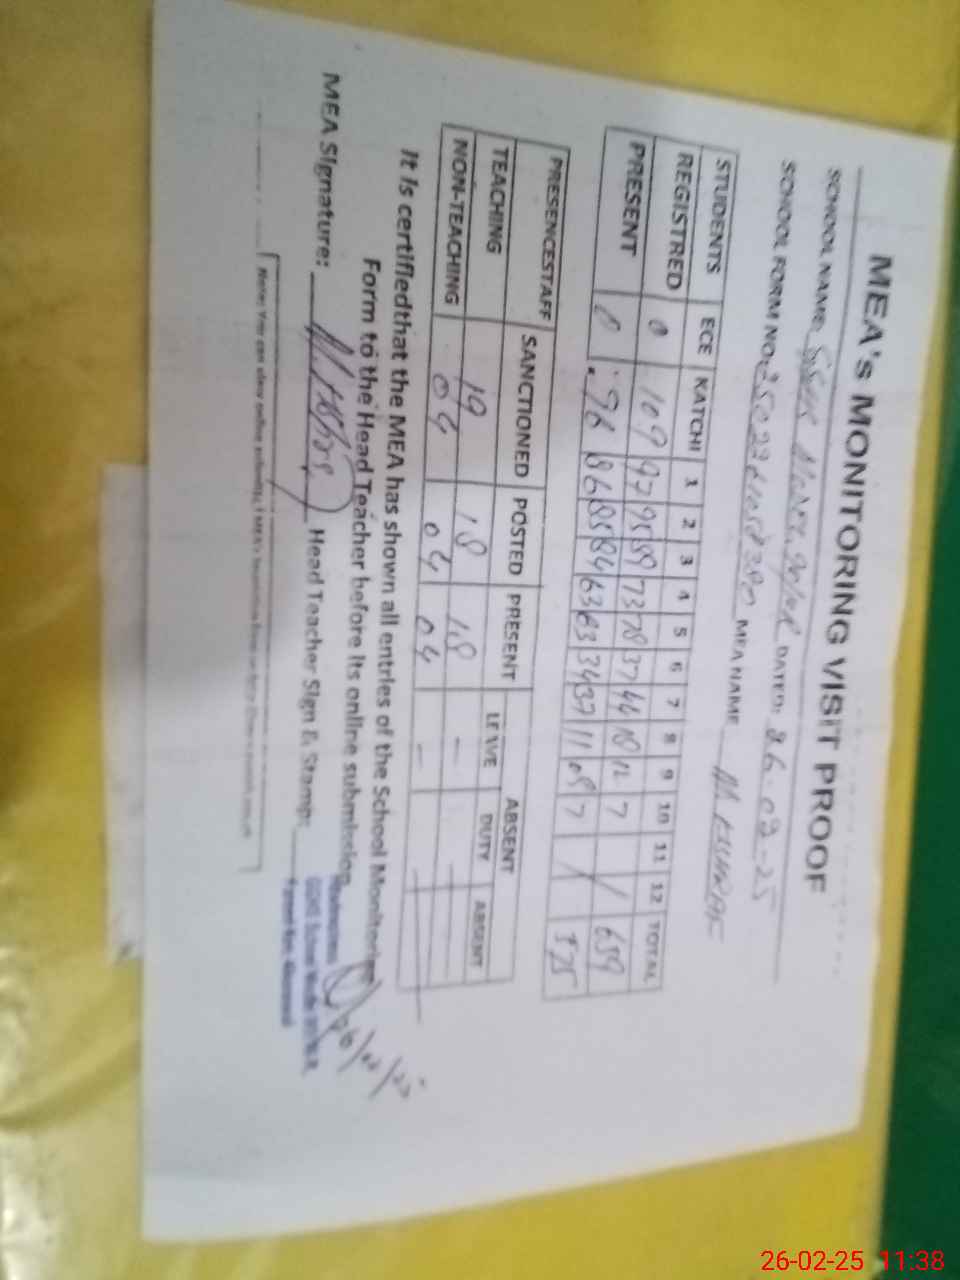 MEA's MONITORING VISIT PROOF
SCHOOL NAME: DATED: 26-02-25
SCHOOL FORM NO: MEA NAME
STUDENTS ECE KATCHI 1 2 3 4 5 6 7 8 9 10 11 12 TOTAL
REGISTRED 0 109 97 95 89 73 78 37 44 18 12 7 659
PRESENT 0 96 86 85 84 63 63 34 37 11 08 7 575
PRESENCESTAFF SANCTIONED POSTED PRESENT ABSENT
LEAVE DUTY ABSENT
TEACHING 19 18 18 -
NON-TEACHING 04 04 04 -
It is certifiedthat the MEA has shown all entries of the School Monitoring
Form to the Head Teacher before its online submission.
MEA Signature: Head Teacher Sign & Stamp:
26-02-25 11:38